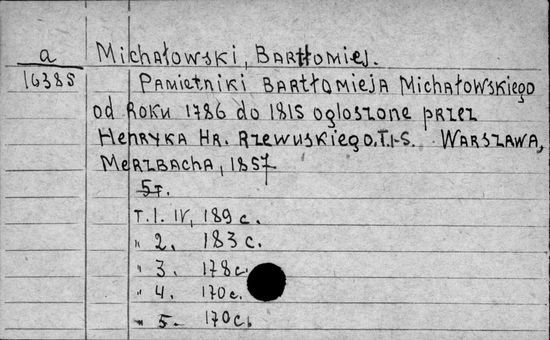 a Michałowski, Bartłomiej.
16385 Pamiętniki Bartłomieja Michałowskiego
od roku 1786 do 1815 ogloszone przez
Henryka Hr. Rzewuskiego. T.1-5. Warszawa,
Merzbacha, 1857
5т.
T.1. IV, 189 c.
" 2. 183 c.
" 3. 178 c.
" 4. 170 c.
" 5. 170 c.